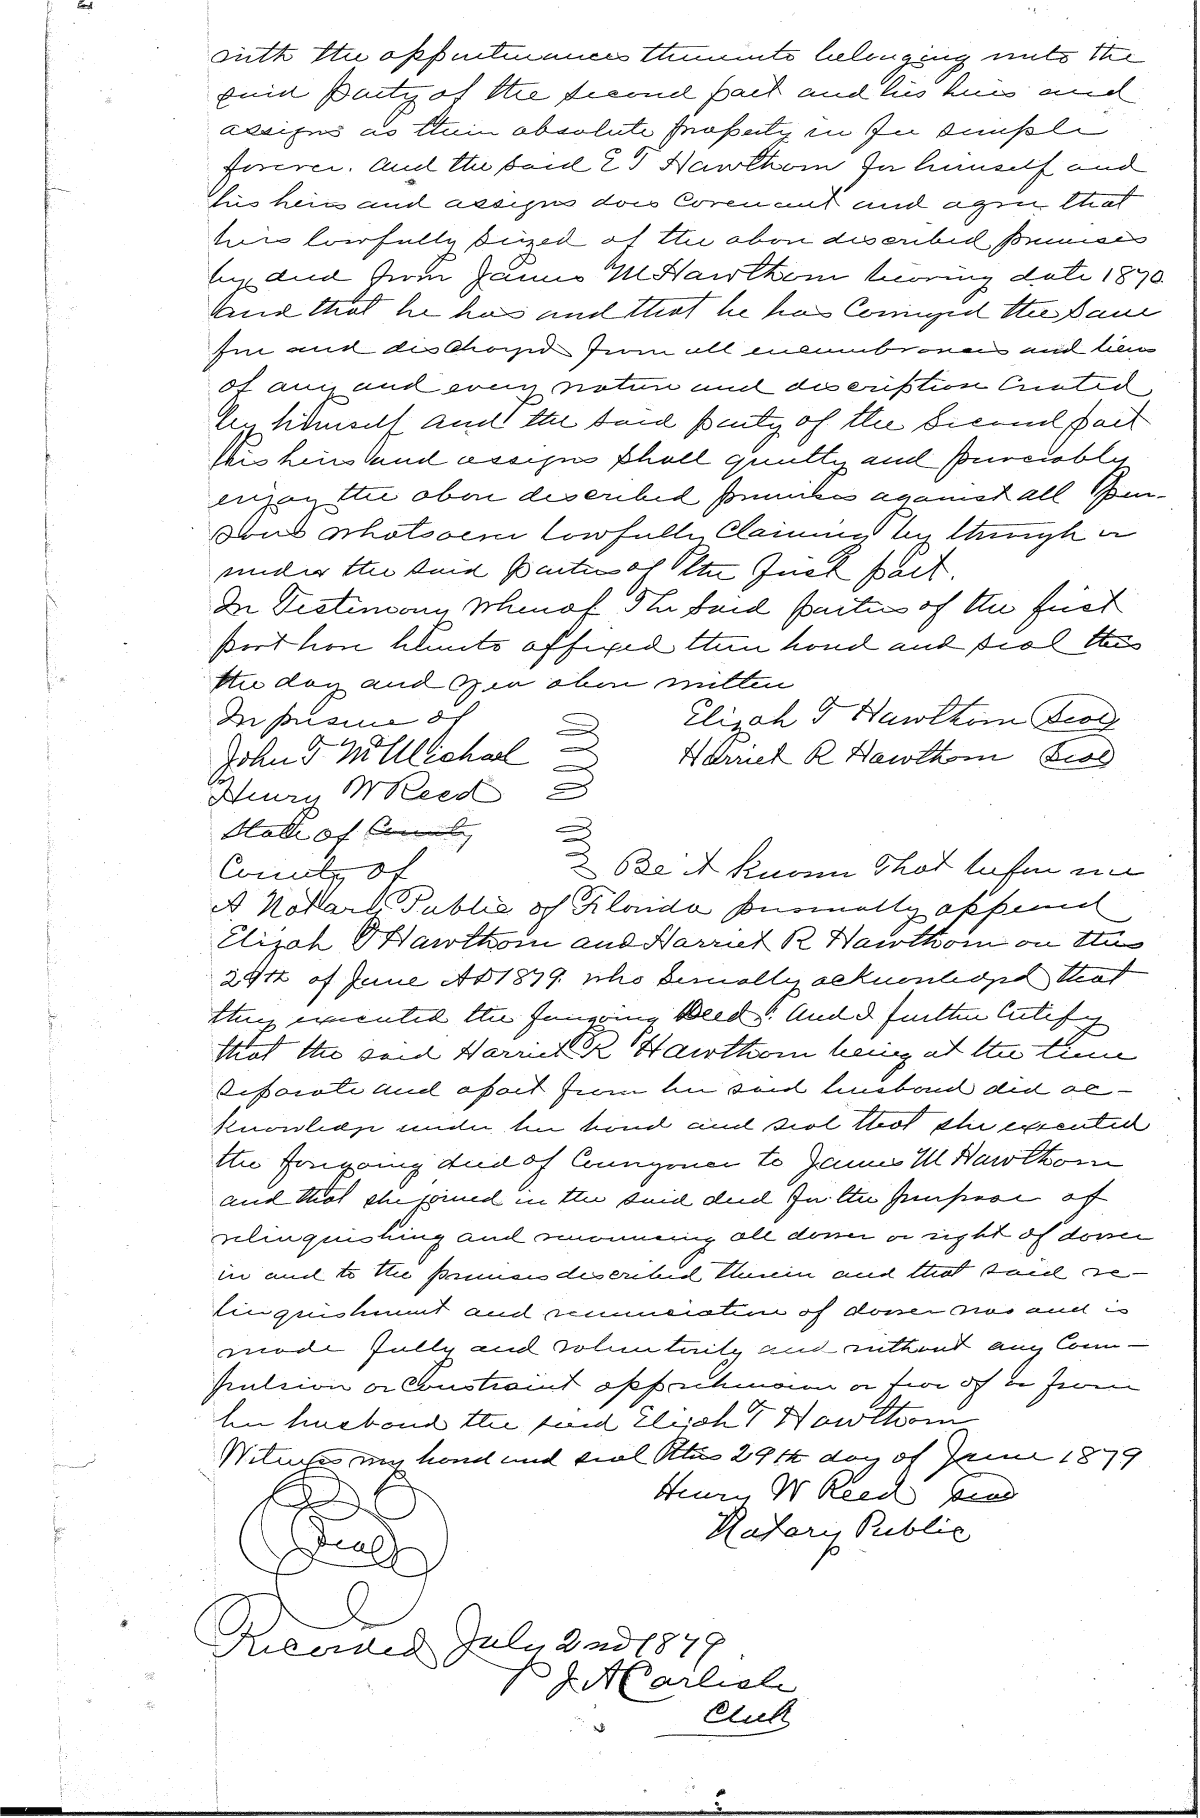 with the appurtenances thereunto belonging unto the
said party of the second part and his heirs and
assigns as their absolute property in fee simple
forever. And the said E T Hawthorn for himself and
his heirs and assigns does Covenant and agree that
he is lawfully seized of the above described premises
by deed from James M Hawthorn bearing date 1870
and that he has and that he has Conveyed the same
free and discharged from all encumbrances and liens
of any and every nature and discription Created
by himself and the said party of the Second part
his heirs and assigns shall quietly and peaceably
enjoy the above described premises against all Per-
sons whatsoever lawfully Claiming by through or
under the said parties of the first part.
In Testimony whereof The said parties of the first
part have hereunto affixed their hand and seal this
the day and year above written
In presence of
Elizah T Hawthorn Seal
John T McMichael
Harriet R Hawthorn Seal
Henry W Reed
State of County
County of
Be it known That before me
A Notary Public of Florida personally appeared
Elizah T Hawthorn and Harriet R Hawthorn on this
29th of June AD 1879 who severally acknowledged that
they executed the foregoing Deed. And I further Certify
that the said Harriet R Hawthorn being at the time
separate and apart from her said husband did ac-
knowledge under her hand and seal that she executed
the foregoing deed of Conveyance to James M Hawthorn
and that she joined in the said deed for the purpose of
relinquishing and renouncing all dower or right of dower
in and to the premises described therein and that said re-
linquishment and renunciation of dower was and is
made fully and voluntarily and without any Com-
pulsion or Constraint apprehension or fear of or from
her husband the said Elijah T Hawthorn
Witness my hand and seal this 29th day of June 1879
Henry W Reed Seal
Seal
Notary Public
Recorded July 2nd 1879
J A Carlisle
Clerk